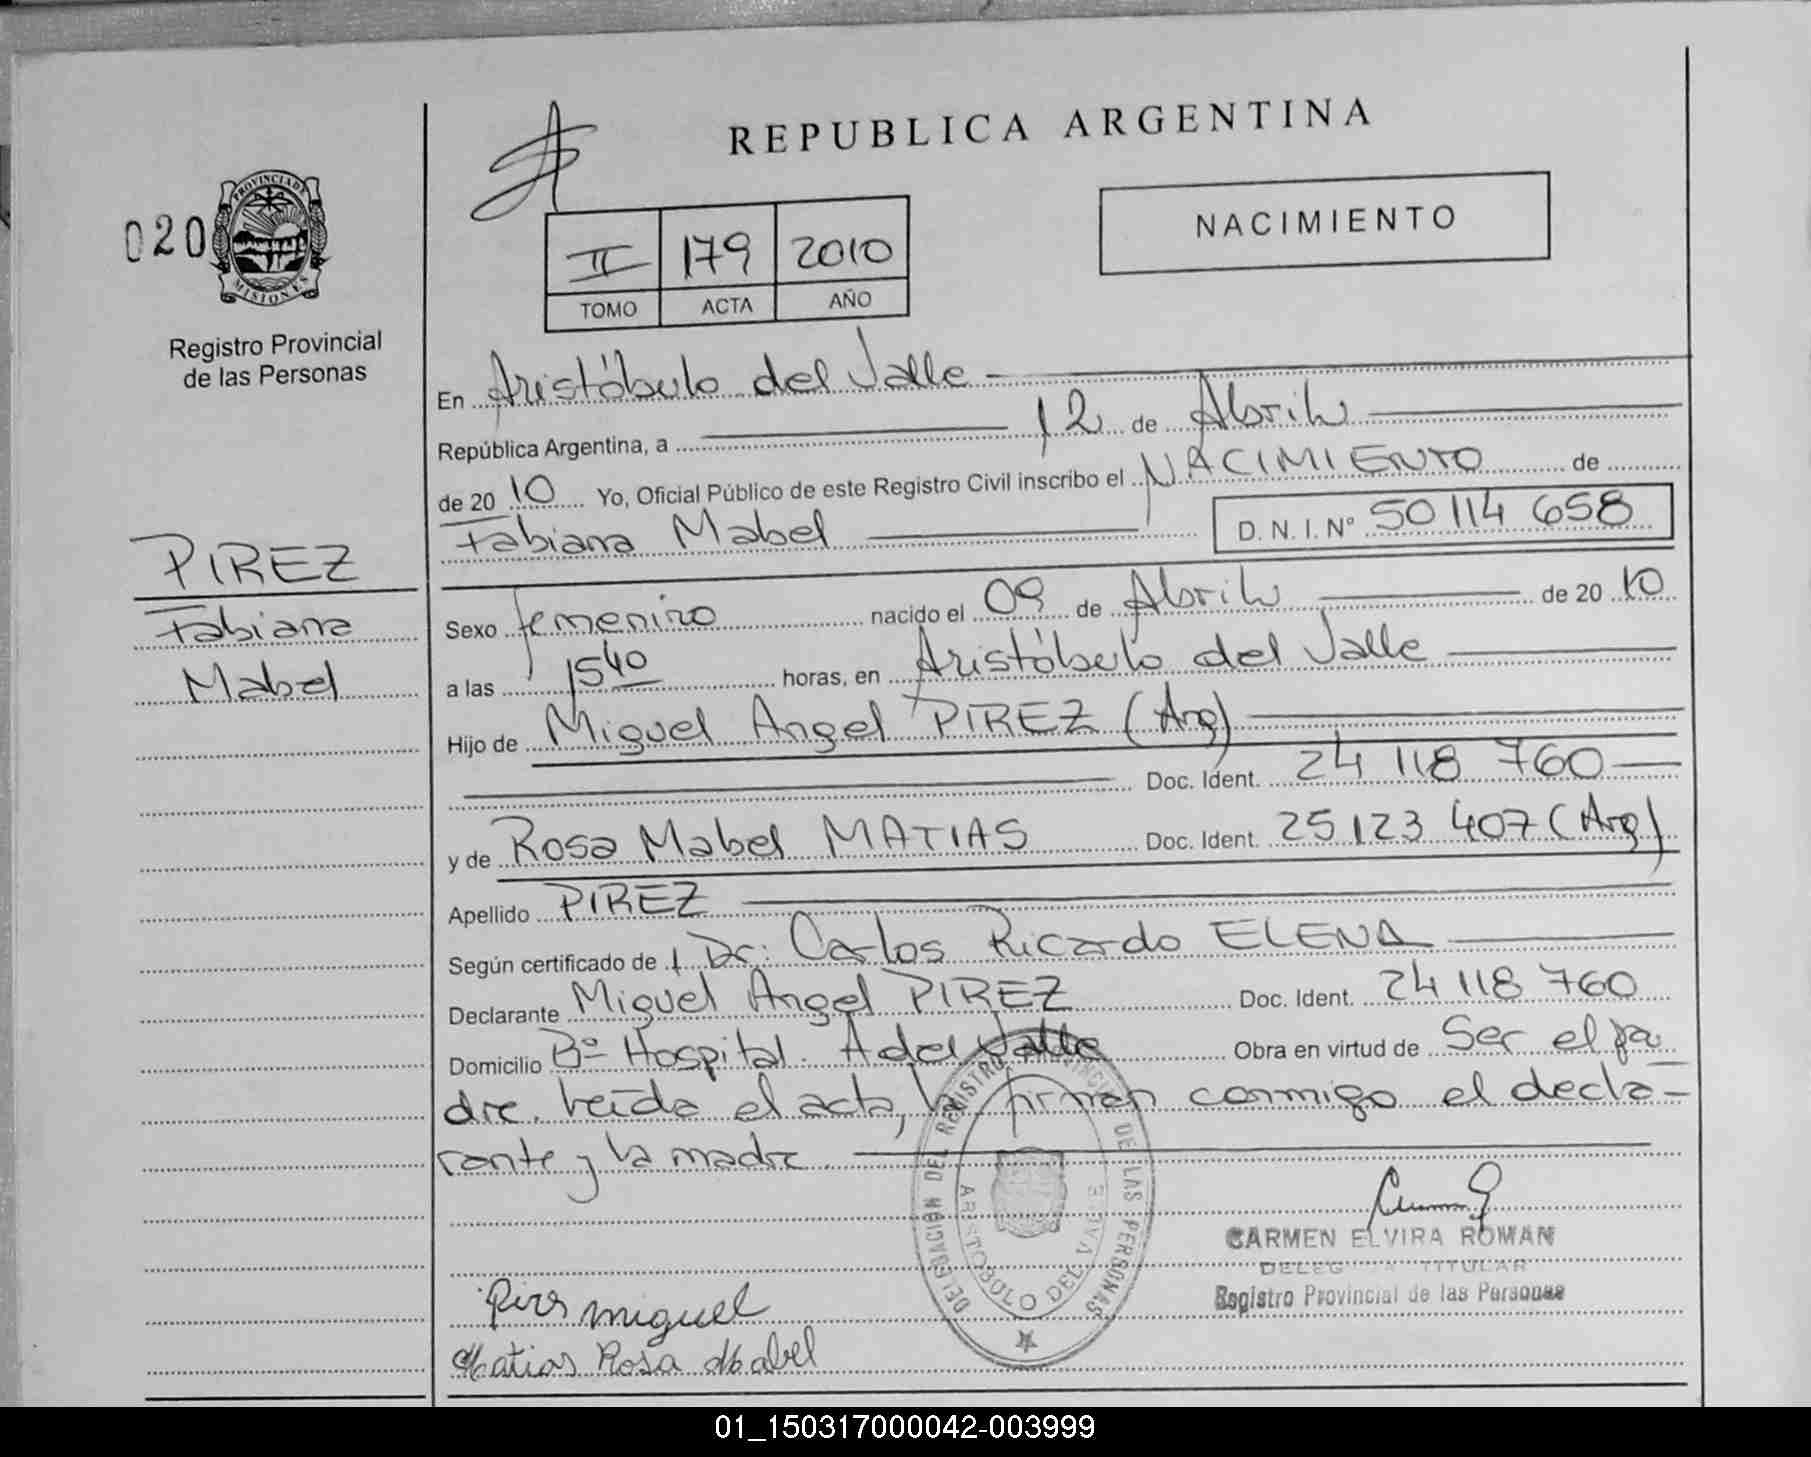 REPUBLICA ARGENTINA
020
PROVINCIA DE
MISIONES
Registro Provincial
de las Personas
II 179 2010
TOMO ACTA AÑO
NACIMIENTO
En Aristóbulo del Valle
República Argentina, a 12 de Abril
de 2010 Yo, Oficial Público de este Registro Civil inscribo el NACIMIENTO de
Fabiana Mabel D.N.I. Nº 50 114 658
PIREZ
Fabiana
Mabel
Sexo femenino nacido el 09 de Abril de 2010
a las 1540 horas, en Aristóbulo del Valle
Hijo de Miguel Angel PIREZ (Arg)
Doc. Ident. 24 118 760
y de Rosa Mabel MATIAS Doc. Ident. 25 123 407 (Arg)
Apellido PIREZ
Según certificado de Dr: Carlos Ricardo ELENA
Declarante Miguel Angel PIREZ Doc. Ident. 24 118 760
Domicilio Bº Hospital. A del Valle Obra en virtud de Ser el pa
dre. Leída el acta, la firman conmigo el decla-
rante y la madre
DELEGACIÓN DEL REGISTRO PROVINCIAL DE LAS PERSONAS
ARISTOBOLO DEL VALLE
CARMEN ELVIRA ROMAN
TITULAR
Registro Provincial de las Personas
miguel
Matias Rosa Mabel
01_150317000042-003999